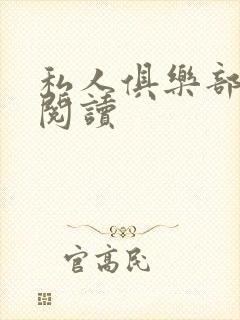 私人俱樂部
閱讀
官高民